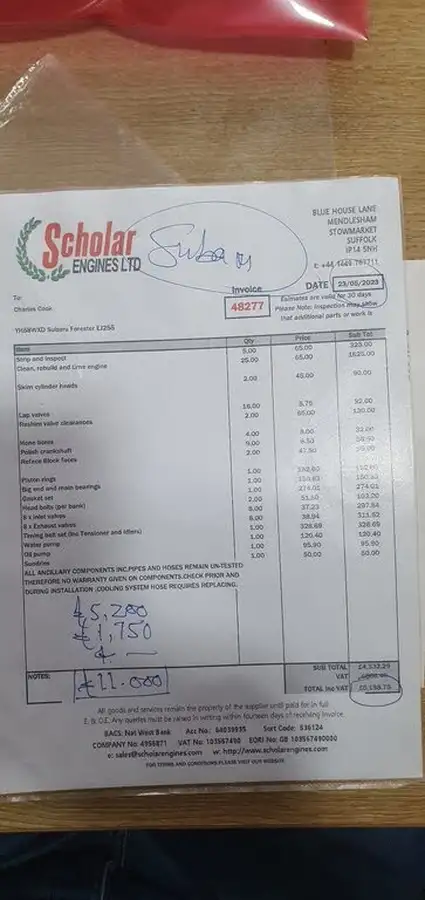 Scholar
ENGINES LTD
Subaru
BLUE HOUSE LANE
MENDLESHAM
STOWMARKET
SUFFOLK
IP14 5NH
Invoice
48277
DATE 23/05/2023
Estimates are valid for 30 days
Please Note: Inspection may show
that additional parts or work is
To:
Charles Cook
YH58WXD Subaru Forester EJ255
Item Qty Price Sub Tot
Strip and inspect 5.00 65.00 325.00
Clean, rebuild and time engine 25.00 65.00 1625.00
Skim cylinder heads 2.00 45.00 90.00
Lap valves 16.00 5.75 92.00
Reshim valve clearances 2.00 65.00 130.00
Hone bores 4.00 8.00 32.00
Polish crankshaft 9.00
Reface Block faces 2.00 47.50
Piston rings 1.00
Big end and main bearings 1.00
Gasket set 1.00 274.01 274.01
Head bolts (per bank) 2.00 51.50 103.00
8 x inlet valves 8.00 37.23 297.84
8 x Exhaust valves 8.00 38.94 311.52
Timing belt set (inc Tensioner and idlers) 1.00 328.69 328.69
Water pump 1.00 120.40 120.40
Oil pump 1.00 95.90 95.90
Sundries 1.00 50.00 50.00
ALL ANCILLARY COMPONENTS INC.PIPES AND HOSES REMAIN UN-TESTED
THEREFORE NO WARRANTY GIVEN ON COMPONENTS.CHECK PRIOR AND
DURING INSTALLATION .COOLING SYSTEM HOSE REQUIRES REPLACING.
£5,200
£1,750
£11.000
NOTES:
SUB TOTAL £4,332.29
VAT
TOTAL Inc VAT £5,198.75
All goods and services remain the property of the supplier until paid for in full
E. & O.E. Any queries must be raised in writing within fourteen days of receiving Invoice
BACS: Nat West Bank Acc No.: 84039935 Sort Code: 536124
COMPANY No: 4956871 VAT No: 103567490 EORI No: GB 103567490000
e: sales@scholarengines.com w: http://www.scholarengines.com
FOR TERMS AND CONDITIONS PLEASE VISIT OUR WEBSITE